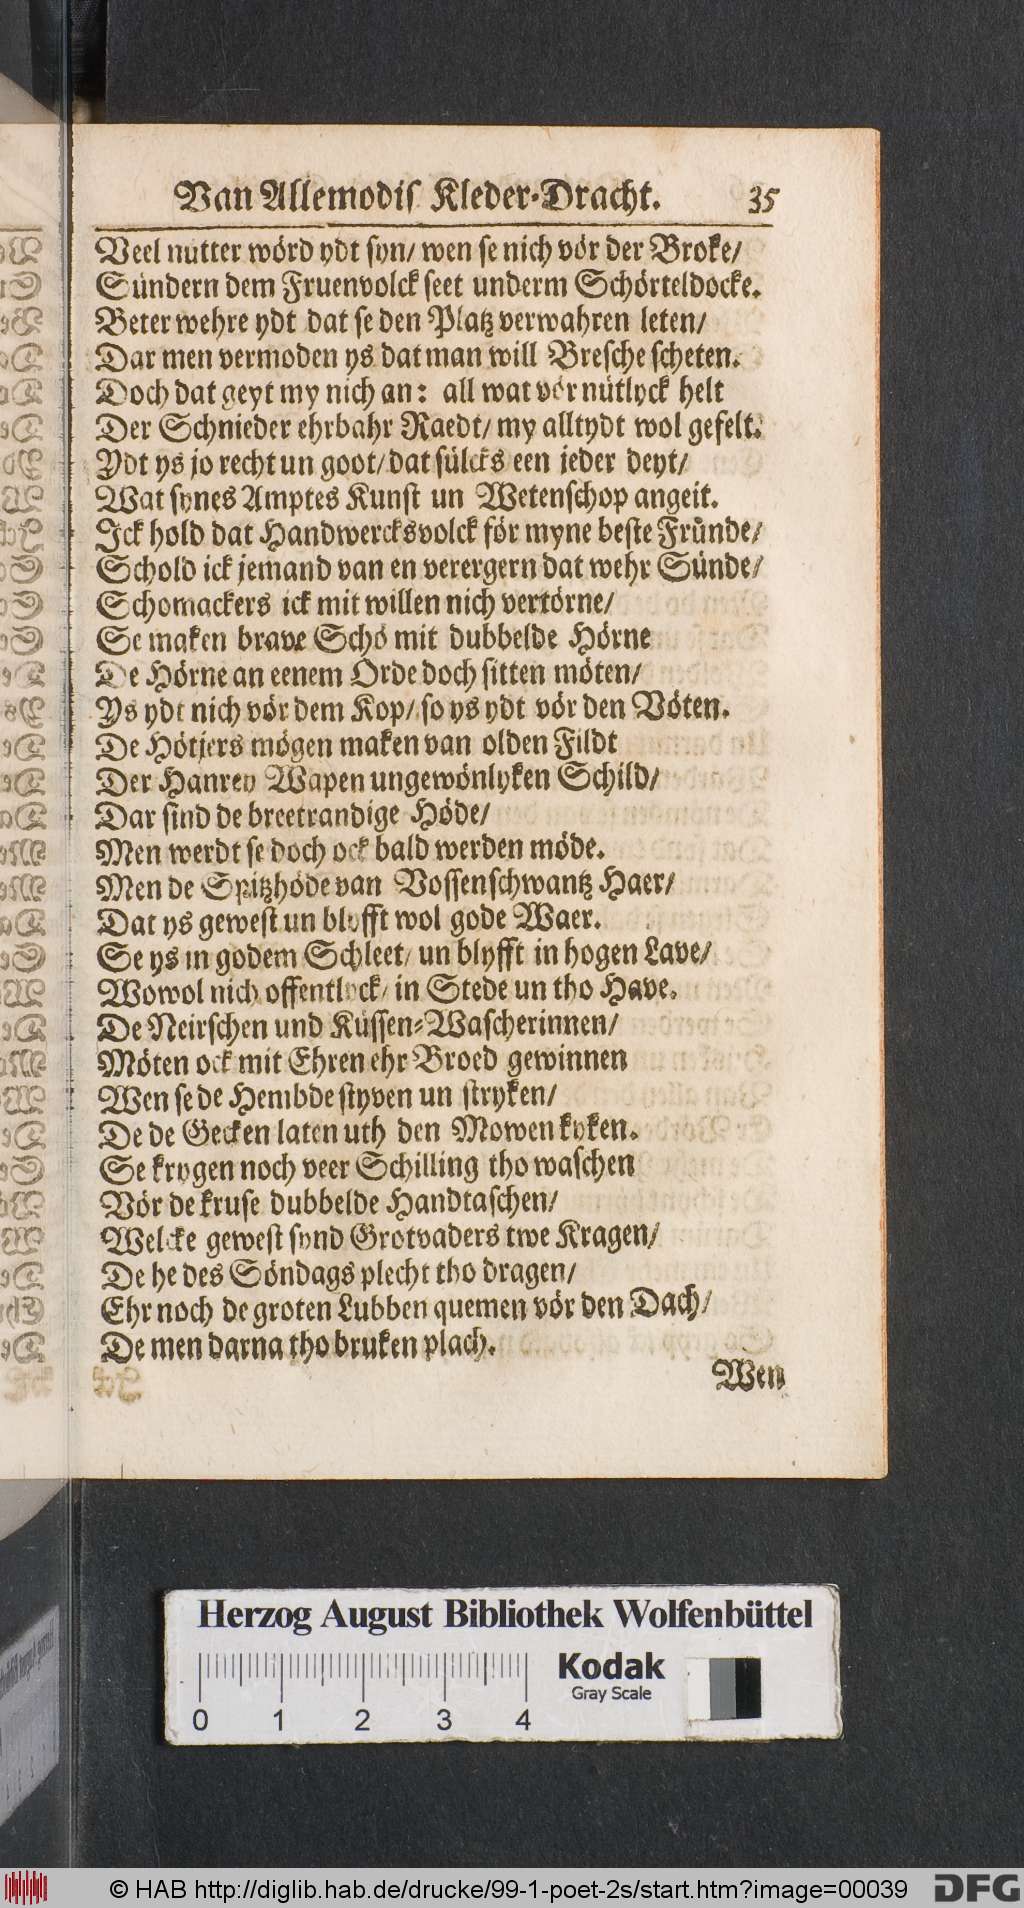 Van Allemodiſ Kleder-Dracht. 35
Veel nutter wörd ydt syn/ wen se nich vör der Broke/
Sündern dem Fruenvolck seet underm Schörteldocke.
Beter wehre ydt dat se den Platz verwahren leten/
Dar men vermoden ys dat man will Bresche scheten.
Doch dat geyt my nich an: all wat vör nütlyck helt
Der Schnieder ehrbahr Raedt/ my alltydt wol gefelt.
Ydt ys jo recht un goot/ dat sülcks een jeder deyt/
Wat synes Amptes Kunst un Wetenschop angeit.
Ick hold dat Handwercksvolck för myne beste Fründe/
Schold ick jemand van en verergern dat wehr Sünde/
Schomackers ick mit willen nich vertörne/
Se maken brave Schö mit dubbelde Hörne
De Hörne an eenem Orde doch sitten möten/
Ys ydt nich vör dem Kop/ so ys ydt vör den Vöten.
De Hötjers mögen maken van olden Fildt
Der Hanrey Wapen ungewönlyken Schild/
Dar sind de breetrandige Höde/
Men werdt se doch ock bald werden möde.
Men de Spitzhöde van Vossenschwantz Haer/
Dat ys gewest un blyfft wol gode Waer.
Se ys in godem Schleet/ un blyfft in hogen Lave/
Wowol nich offentlyck/ in Stede un tho Have.
De Neirschen und Küssen=Wascherinnen/
Möten ock mit Ehren ehr Broed gewinnen
Wen se de Hembde styven un stryken/
De de Gecken laten uth den Mowen kyken.
Se krygen noch veer Schilling tho waschen
Vör de kruse dubbelde Handtaschen/
Welcke gewest synd Grotvaders twe Kragen/
De he des Söndags plecht tho dragen/
Ehr noch de groten Lubben quemen vör den Dach/
De men darna tho bruken plach.
Wen
Herzog August Bibliothek Wolfenbüttel
Kodak
Gray Scale
0 1 2 3 4
© HAB http://diglib.hab.de/drucke/99-1-poet-2s/start.htm?image=00039
DFG